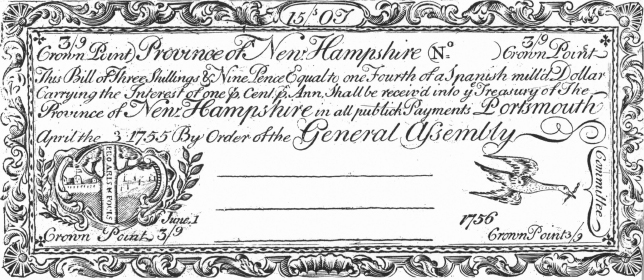 15/0T
3/9 3/9
Crown Point) Province of New Hampshire (No. )Crown Point
This Bill of Three Shillings & Nine Pence Equal to one Fourth of a Spanish mill'd Dollar
Carrying the Interest of one ꝑ Cent, ꝑ Ann, Shall be receiv'd into ye Treasury of The
Province of New Hampshire in all publick Payments Portsmouth
April the 3 1755 By Order of the General Assembly
Committee
June 1 1756
Crown Point 3/9 Crown Point 3/9